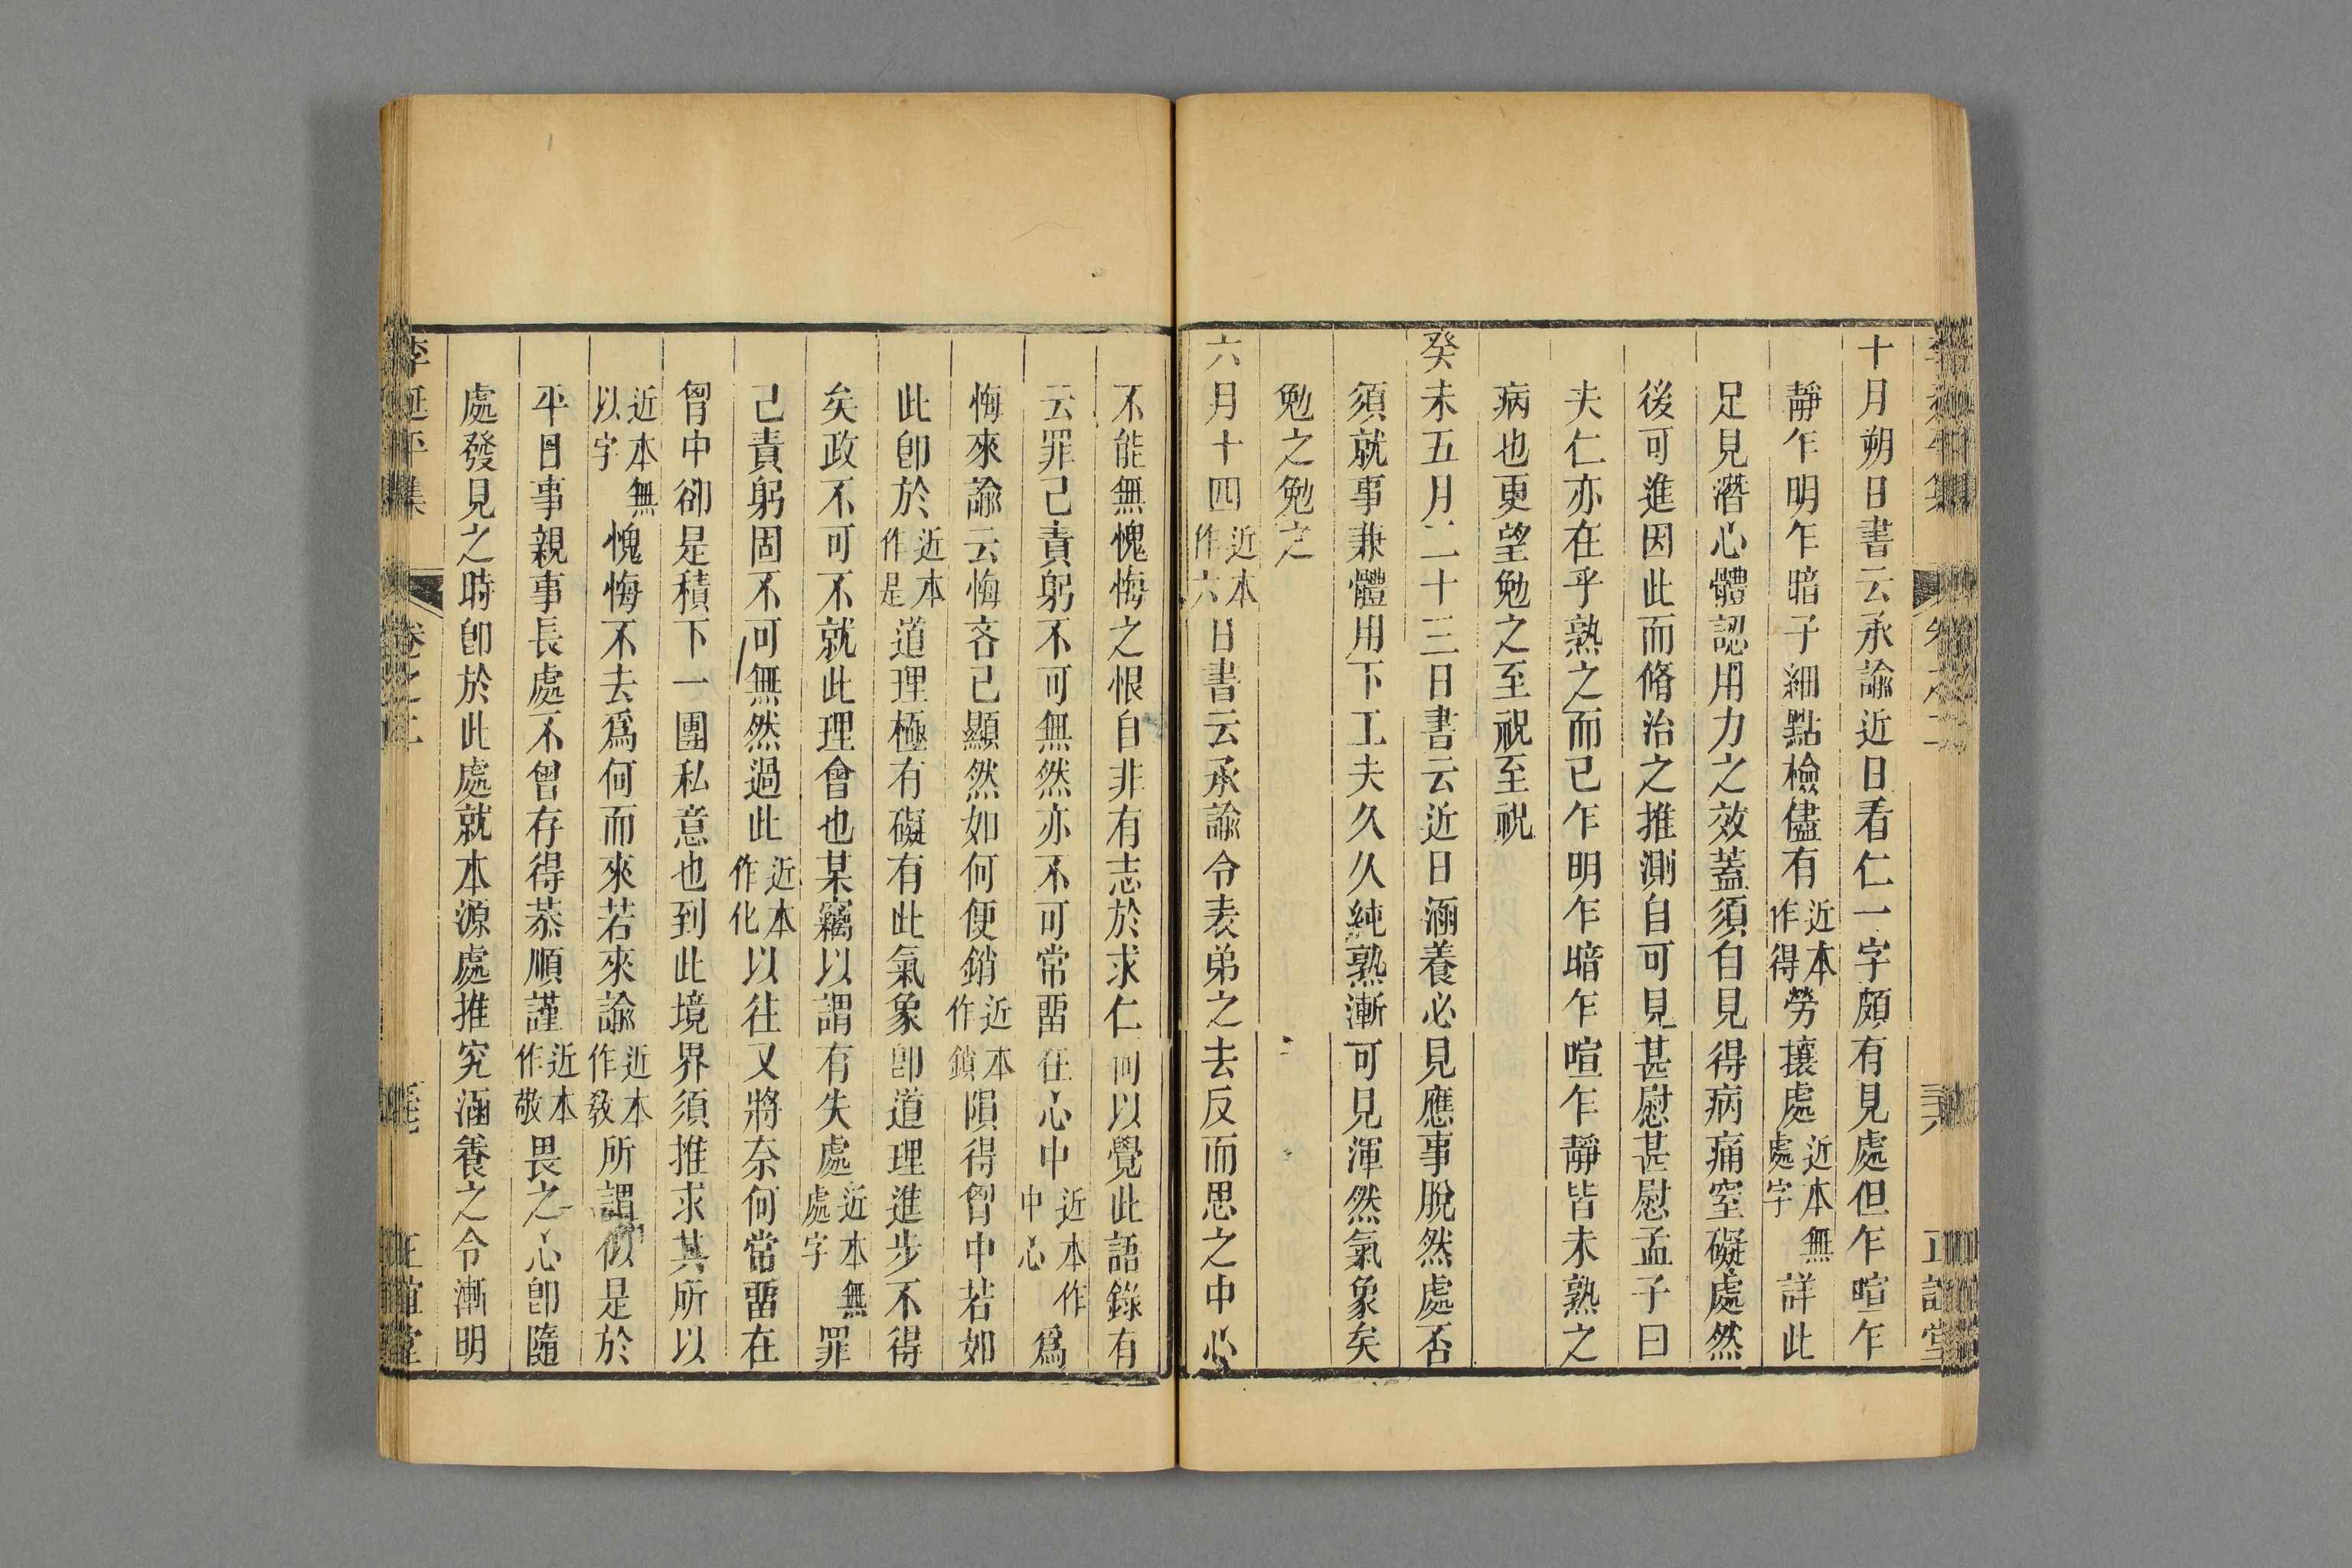 十月朔日書云承諭近日看仁一字頗有見處但乍喧乍
靜乍明乍暗子細點檢儘有近本作得勞攘處近本無處字詳此
足見潛心體認用力之效蓋須自見得病痛窒礙處然
後可進因此而脩治之推測自可見甚慰甚慰孟子曰
夫仁亦在乎熟之而已乍明乍暗乍喧乍靜皆未熟之
病也更望勉之至祝至祝
癸未五月二十三日書云近日涵養必見應事脫然處否
須就事兼體用下工夫久久純熟漸可見渾然氣象矣
勉之勉之
六月十四近本作六日書云承諭令表弟之去反而思之中心
不能無愧悔之恨自非有志於求仁何以覺此語錄有
云罪己責躬不可無然亦不可常畱在心中近本作中心爲
悔來諭云悔吝已顯然如何便銷近本作鎖隕得胷中若如
此卽於近本作是道理極有礙有此氣象卽道理進步不得
矣政不可不就此理會也某竊以謂有失處近本無處字罪
己責躬固不可無然過此近本作化以往又將奈何常畱在
胷中卻是積下一團私意也到此境界須推求其所以
近本無以字愧悔不去爲何而來若來諭近本作敎所謂似是於
平日事親事長處不曾存得恭順謹近本作敬畏之心卽隨
處發見之時卽於此處就本源處推究涵養之令漸明
李延平集 卷之二 正誼堂